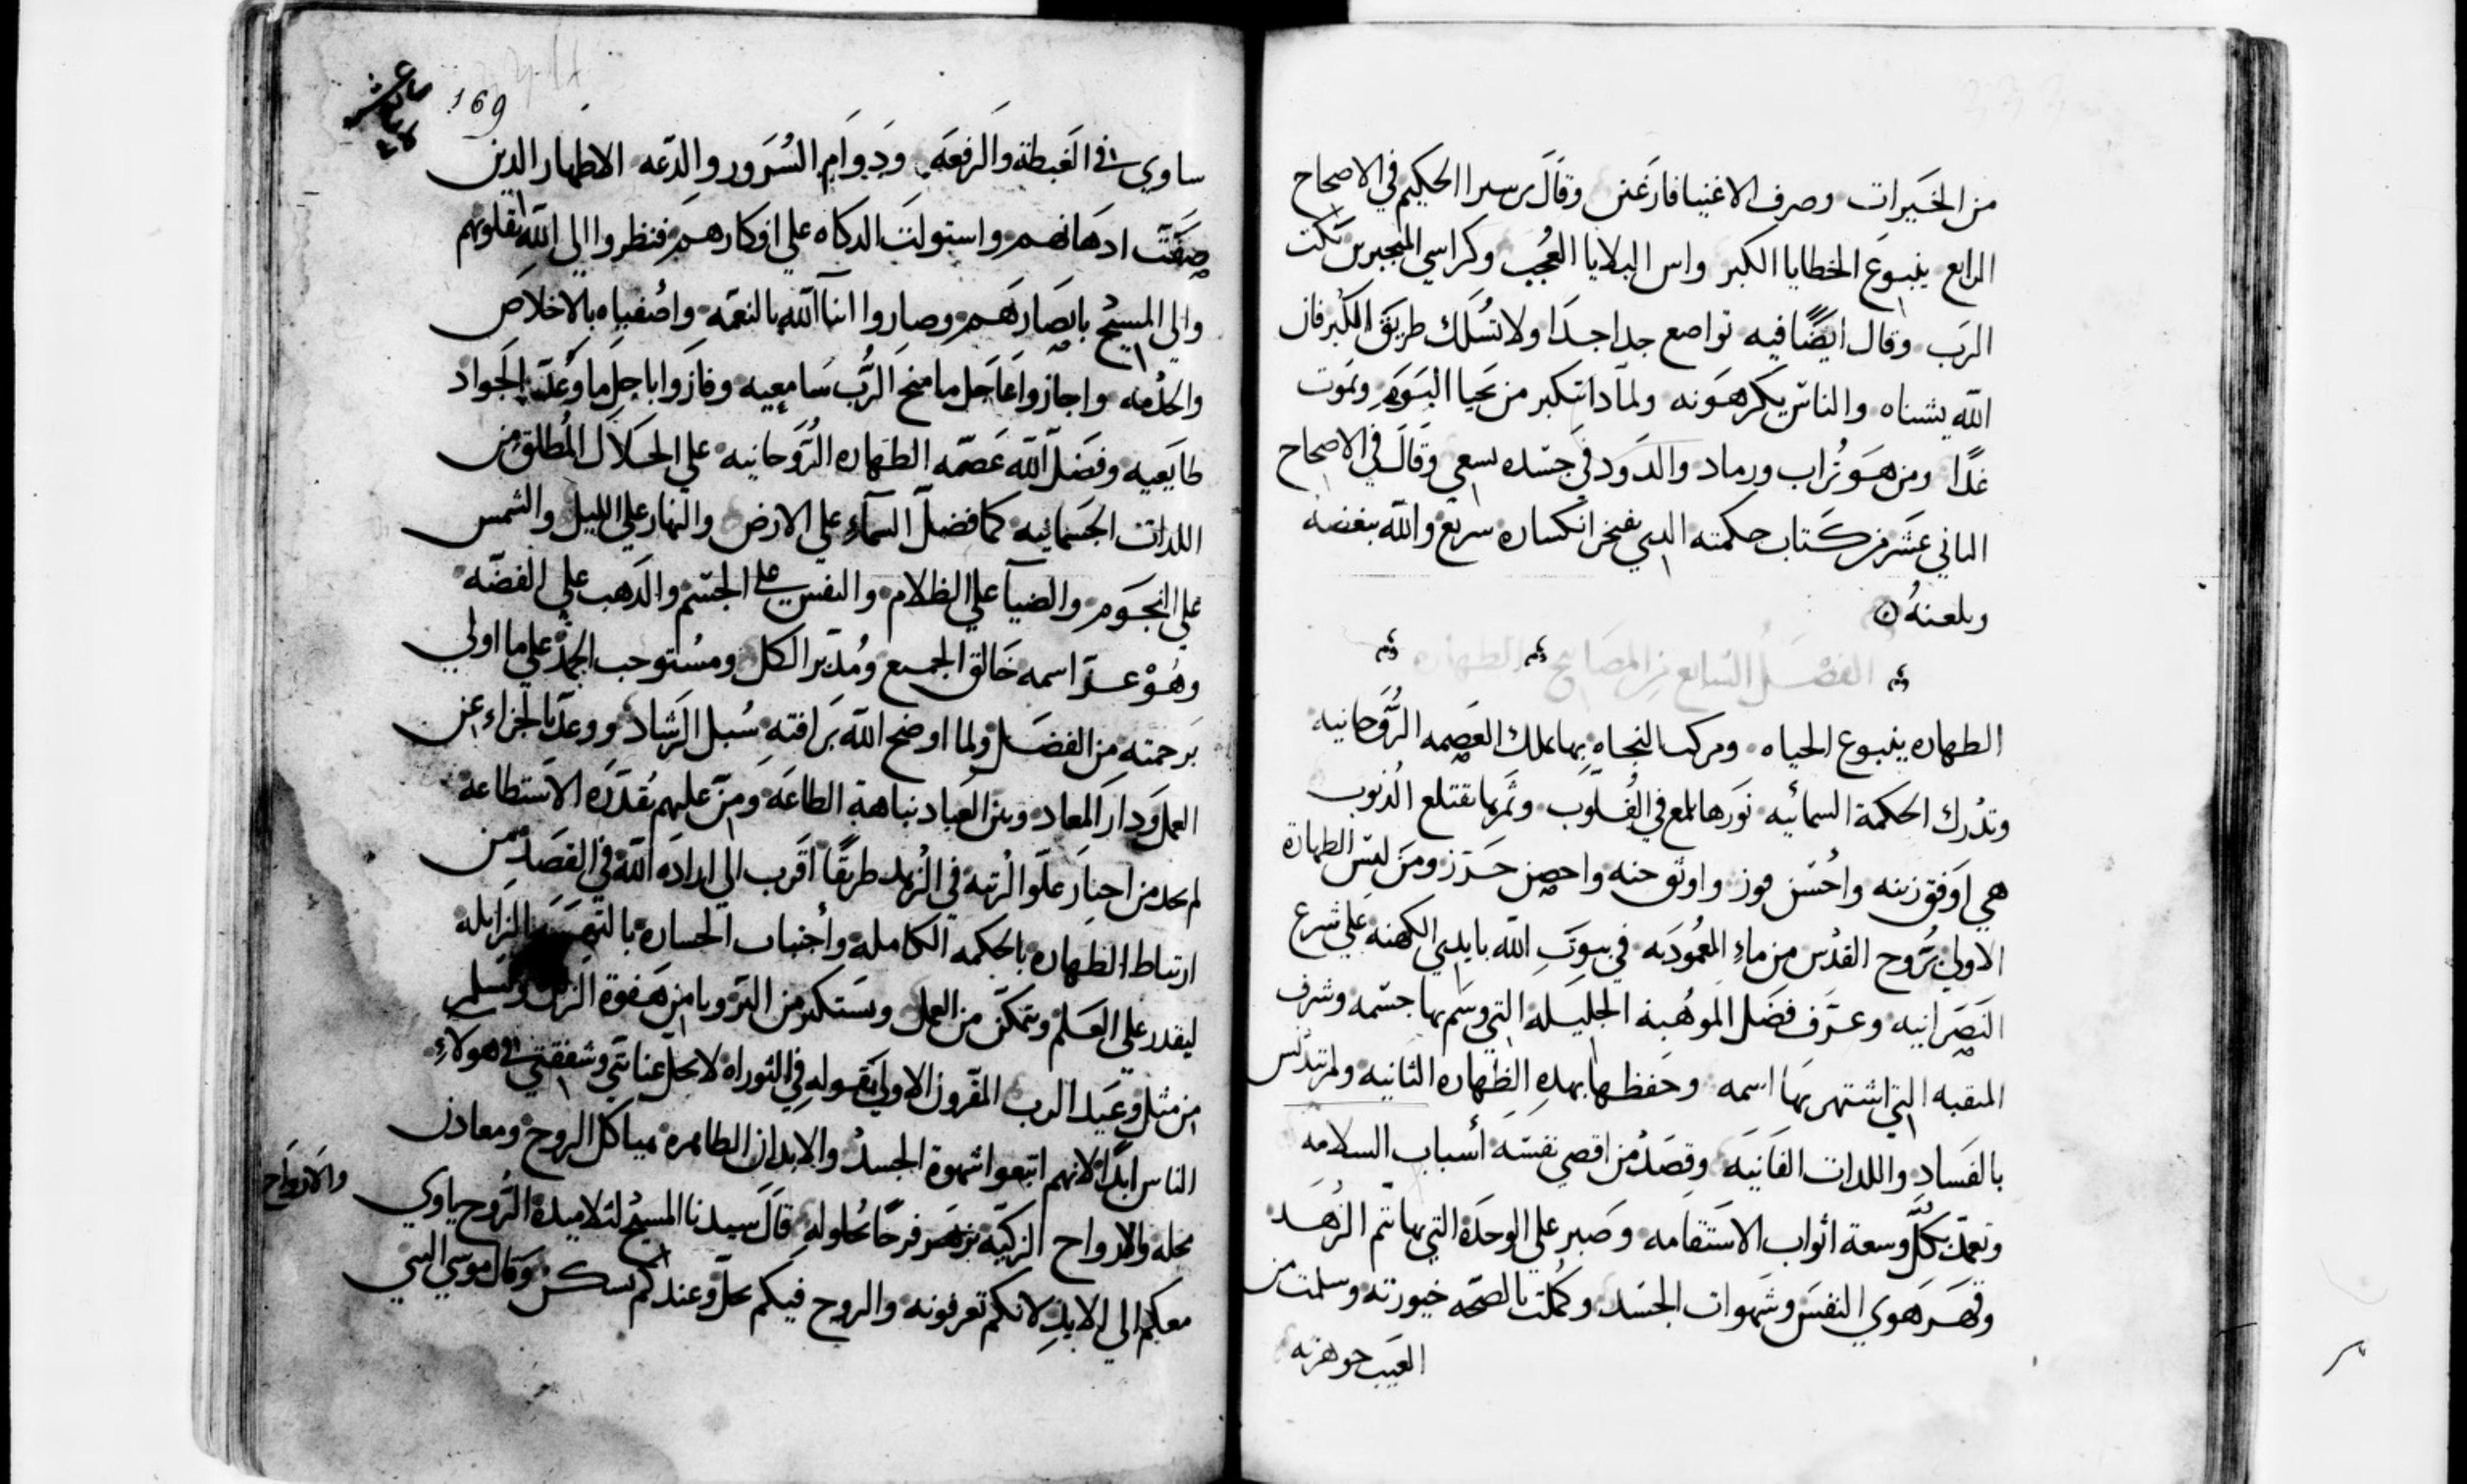 من الخيرات وصرف الاغنيا فارغين وقال برسيرا الحكيم في الاصحاح
الرابع ينبوع الخطايا الكبر واس البلايا العجب وكراسي المتجبرين نكت
الرب وقال ايضًا فيه تواضع جدا جدًا ولا تسلك طريق الكبر فان
الله يشناه والناس يكرهونه ولماذا تتكبر من تحيا اليوم وتموت
غدًا ومن هو تراب ورماد والدود في جسده يسعي وقال في الاصحاح
الثاني عشر من كتاب حكمته الدي يفخر انكساره سريع والله يبغضه
ويلعنه
الفصل السابع من المصابيح الطهاره
الطهاره ينبوع الحياه ومركب النجاه بها تملك العصمه الروحانيه
وتدرك الحكمة السمائيه نورها يلمع في القلوب وثمرها تقتلع الذنوب
هي اوفق زينه واحسن فوز واوثق جنه واحصن حرز ومن لبس الطهارة
الاولي بروح القدس من ماء المعموديه في بيوت الله بايدي الكهنه علي شرع
النصرانيه وعرف فضل الموهبة الجليله التي وسم بها جسمه وشرف
المنقبه التي اشتهر بها اسمه وحفظها بهذه الطهاره الثانيه ولم تتدنس
بالفساد واللدات الفانيه وقصد من اقصي نفسه أسباب السلامه
وتعمد بكل وسعة اثواب الاستقامه وصبر علي الوحدة التي بها تتم الزهد
وقهر هوي النفس وشهوات الجسد وكملت بالصحه خيورته وسلمت من
العيب جوهرته
169
ساوي في الغبطة والرفعه ودوام السرور والدعه الاطهار الدين
صفت ادهانهم واستولت الدكاه علي افكارهم فنظروا الي الله بقلوبهم
والي المسيح بابصارهم وصاروا ابنآ الله بالنعمه واصفياه بالاخلاص
والخدمه واجازوا عاجل ما منح الرب سامعيه وفازوا باجل ما وعد به الجواد
طايعيه وفضل الله عصمه الطهاره الروحانيه علي الحلال المطلق من
اللدات الجسمانيه كما فضل السمآء علي الارض والنهار علي الليل والشمس
علي النجوم والضيآ علي الظلام والنفس علي الجسم والدهب علي الفضه
وهو عز اسمه خالق الجميع ومدبر الكل ومستوجب الحمد علي ما اولي
برحمته من الفضل ولما اوضح الله برافته سبل الرشاد ووعد بالجزاء عن
العمل ودار المعاد وبين العباد نباهة الطاعه ومن عليهم بقدره الاستطاعه
لم يجد من اختار علو الرتبه في الزهد طريقًا اقرب الي ارادة الله في القصد من
ارتباط الطهاره بالحكمه الكامله واجتناب الخساره الزايله
ليقدر علي العلم ويتمكن من العمل ويستكثر من البر ويامن هفوة الزلل وتسلم
من مثل وعيد الرب المقرون الاولي بقوله في التوراه لا تحل عنايتي وشفقتي في هولاء
الناس ابدًا لانهم اتبعوا شهوة الجسد والابدان الطاهره هياكل الروح ومعادن
محله والارواح الزكيه تزهر فرحًا بحلوله قال سيدنا المسيح لتلاميده الروح ياوي والارواح
معكم الي الابد لانكم تعرفونه والروح فيكم يحل وعندكم يسكن وقال موسي النبي